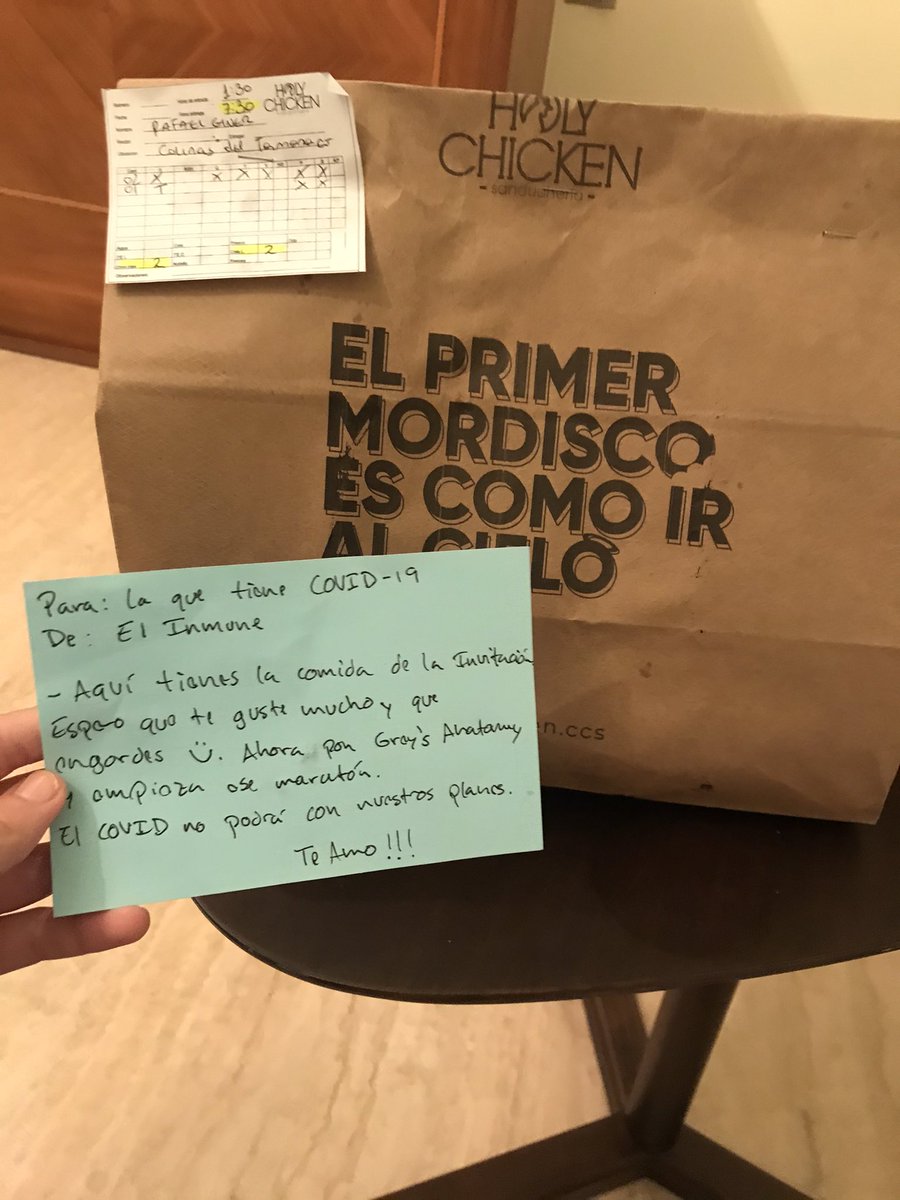 1:30
7:30
HOLY
CHICKEN
RAFAEL
Colinas del
2
2
HOLY
CHICKEN
- sanducheria -
EL PRIMER
MORDISCO
ES COMO IR
AL CIELO
en.ccs
Para: La que tiene COVID-19
De: El Inmune
- Aquí tienes la comida de la Invitación
Espero que te guste mucho y que
engordes Ü. Ahora pon Grey's Anatamy
y empieza ese maratón.
El COVID no podrá con nuestros planes.
Te Amo!!!